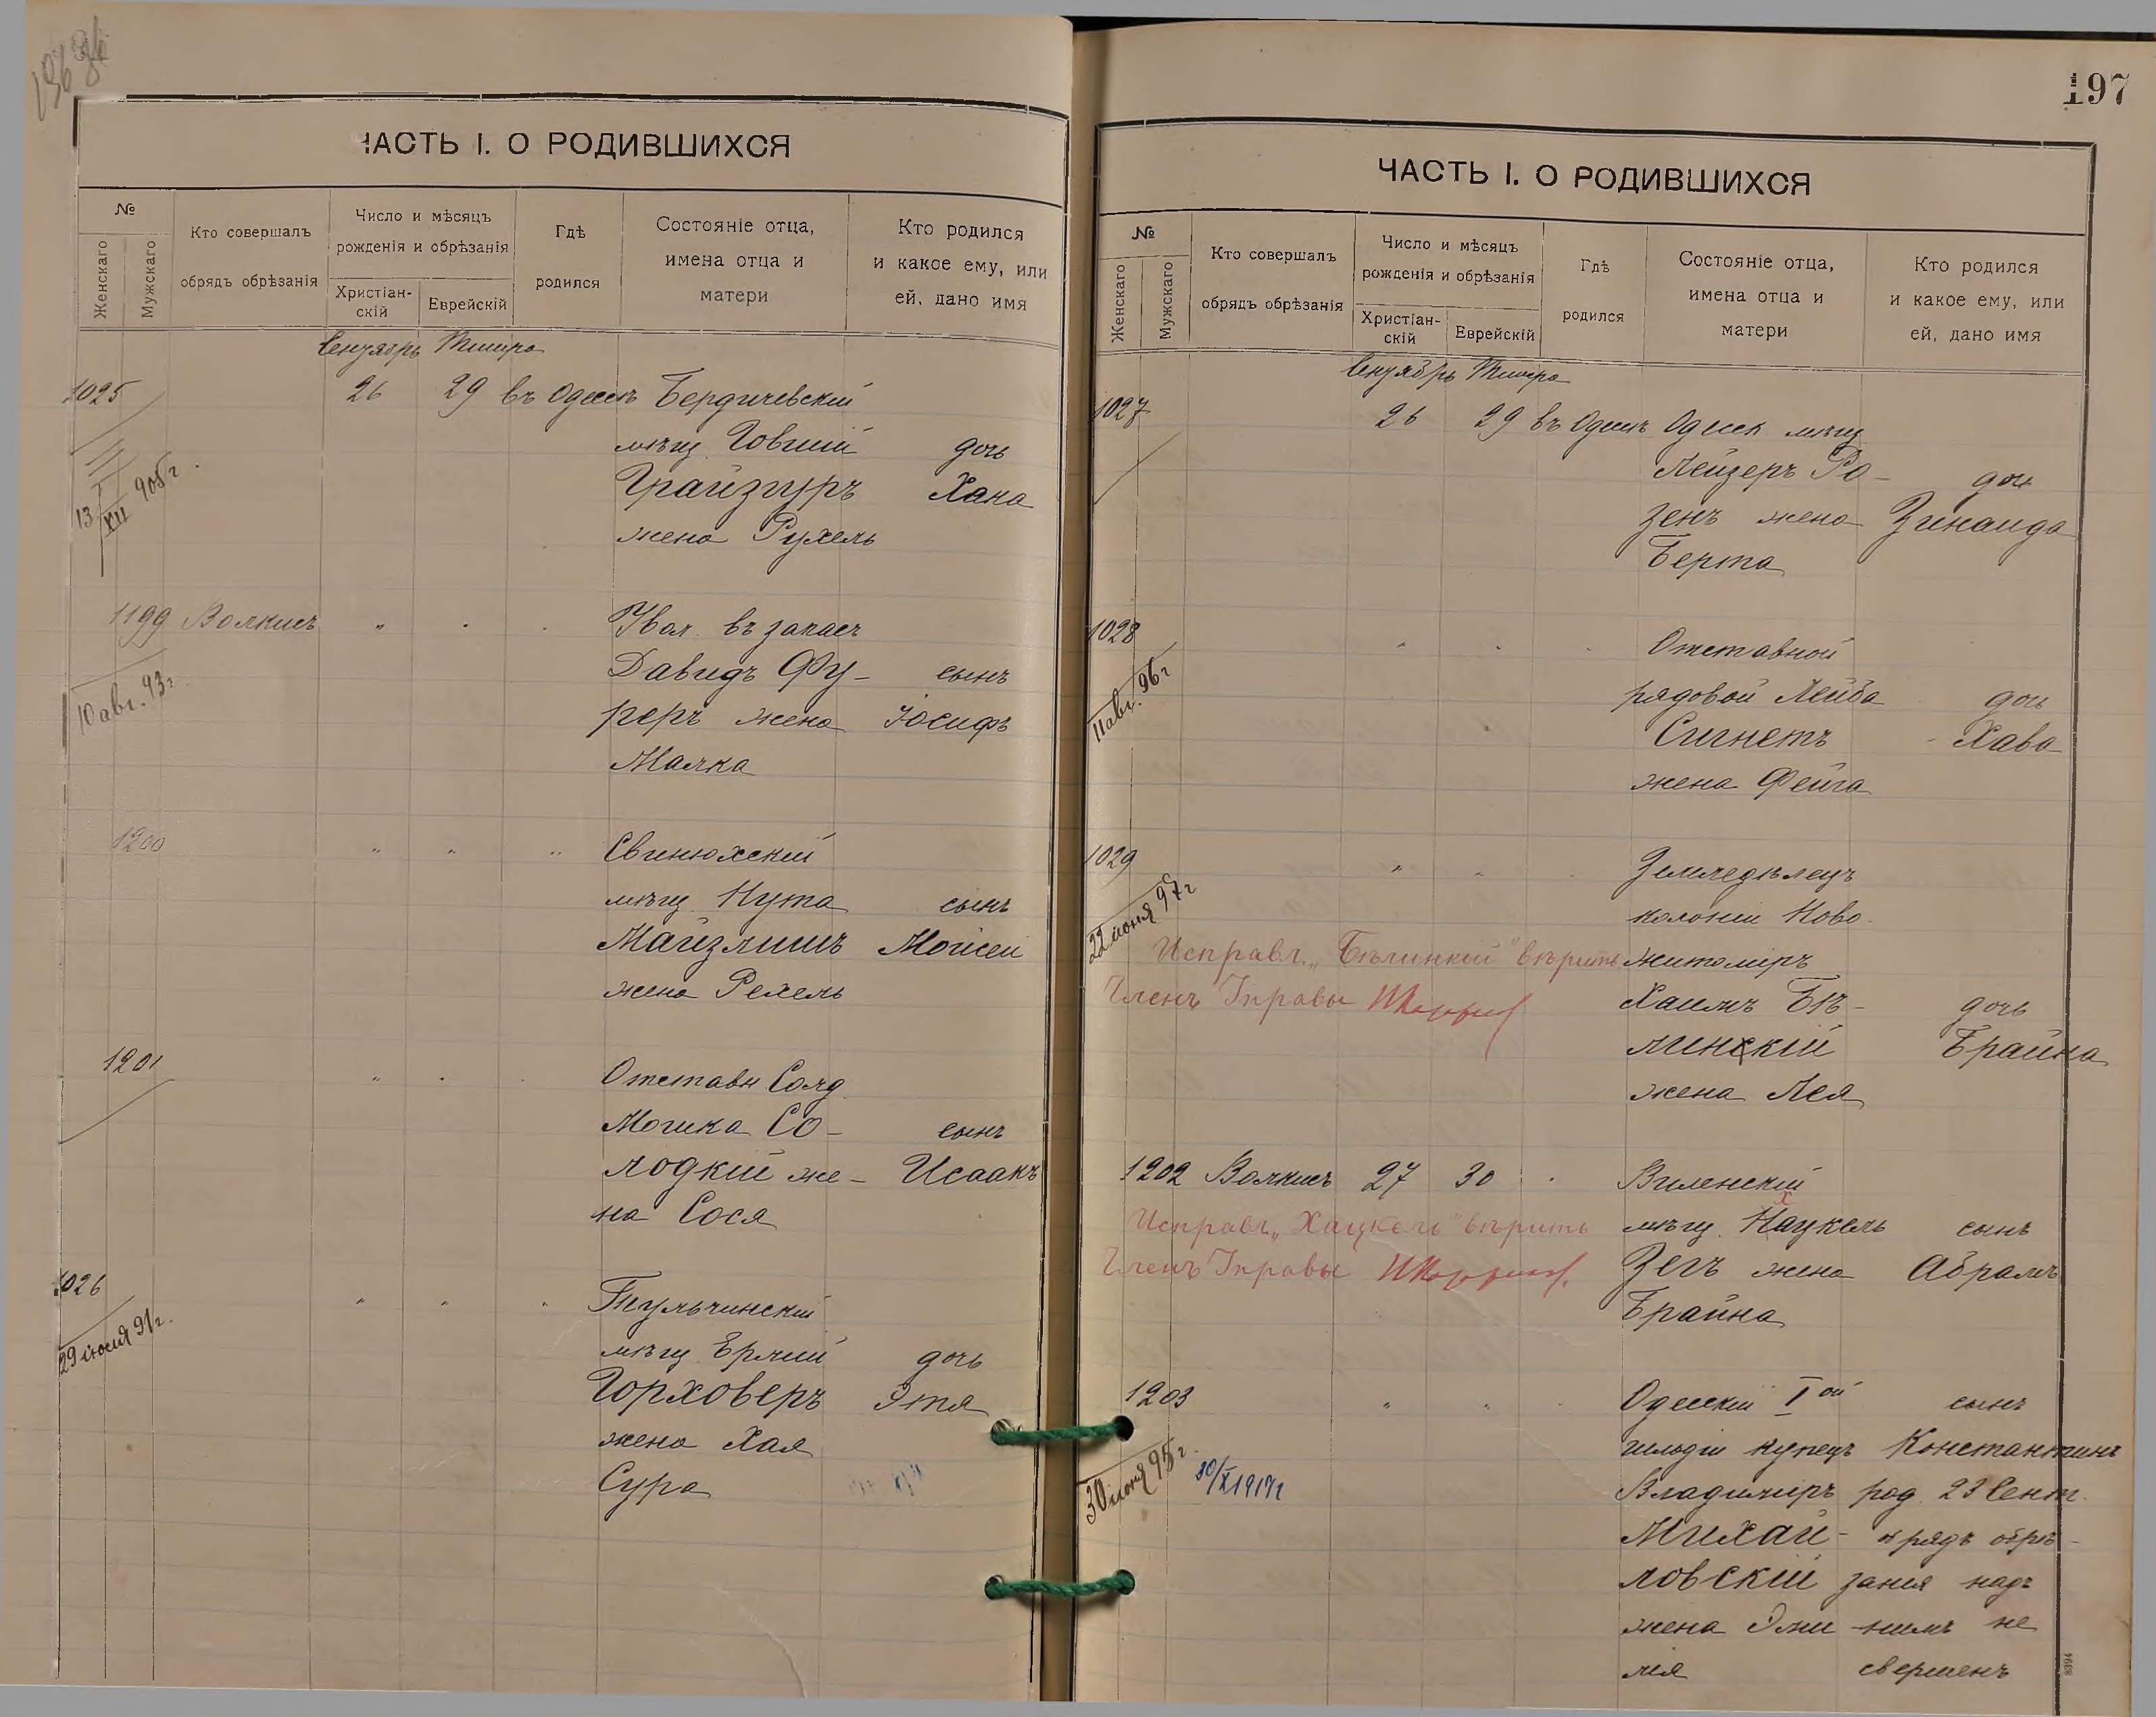 ЧАСТЬ I. О РОДИВШИХСЯ
№
Женскаго
Мужскаго
Кто совершалъ
обрядъ обрѣзанія
Число и мѣсяцъ
рожденія и обрѣзанія
Христіан-
скій
Еврейскій
Гдѣ
родился
Состояніе отца,
имена отца и
матери
Кто родился
и какое ему, или
ей, дано имя
Сентябрь Тишро
1025 26 29 въ Одессѣ Бердичевскій
мѣщ. Говшій дочь
Грайзгуръ Хана
жена Рухель
13 XII 905 г.
1199 Волкисъ " Увол. въ запасъ
Давидъ Фу- сынъ
реръ жена Іосифъ
Малка
10 авг. 93 г.
1200 " " " Свинюхскій
мѣщ Нута сынъ
Майзлишъ Мойсей
жена Рехель
1201 " Отставн Солд.
Мошка Со- сынъ
лодкій же- Исаакъ
на Сося
1026 " " " Тульчинскій
мѣщ Ерлій дочь
Горховеръ Этя
жена Хая
Сура
29 іюля 91 г.
197
ЧАСТЬ I. О РОДИВШИХСЯ
№
Женскаго
Мужскаго
Кто совершалъ
обрядъ обрѣзанія
Число и мѣсяцъ
рожденія и обрѣзанія
Христіан-
скій
Еврейскій
Гдѣ
родился
Состояніе отца,
имена отца и
матери
Кто родился
и какое ему, или
ей, дано имя
Сентябрь Тишро
1027 26 29 въ Одессѣ Одесск мѣщ
Лейзеръ Ро- дочь
зенъ жена Зинаида
Берта
1028 " " Отставной
рядовой Лейба дочь
Сигнетъ Хава
жена Фейга
11 авг. 96 г
1029 " " Земледѣлецъ
колоніи Ново
житомиръ
Хаимъ Бѣ- дочь
линскій Брайна
жена Лея
22 іюня 97 г
Исправл. „Бѣлинкій" вѣрить
Членъ Управы
1202 Волкисъ 27 30 Виленскій
мѣщ. Хацкель сынъ
Зегъ жена Абрамъ
Брайна
Исправл. „Хацкель" вѣрить
Членъ Управы
1203 " " Одесскій I ой сынъ
гильдіи купецъ Константинъ
Владимиръ род. 23 Сент.
Михай- обрядъ обрѣ-
ловскій занія надъ
жена Эми- нимъ не
лія свершенъ
30 іюня 95 г.
30/X 1917 г
8394